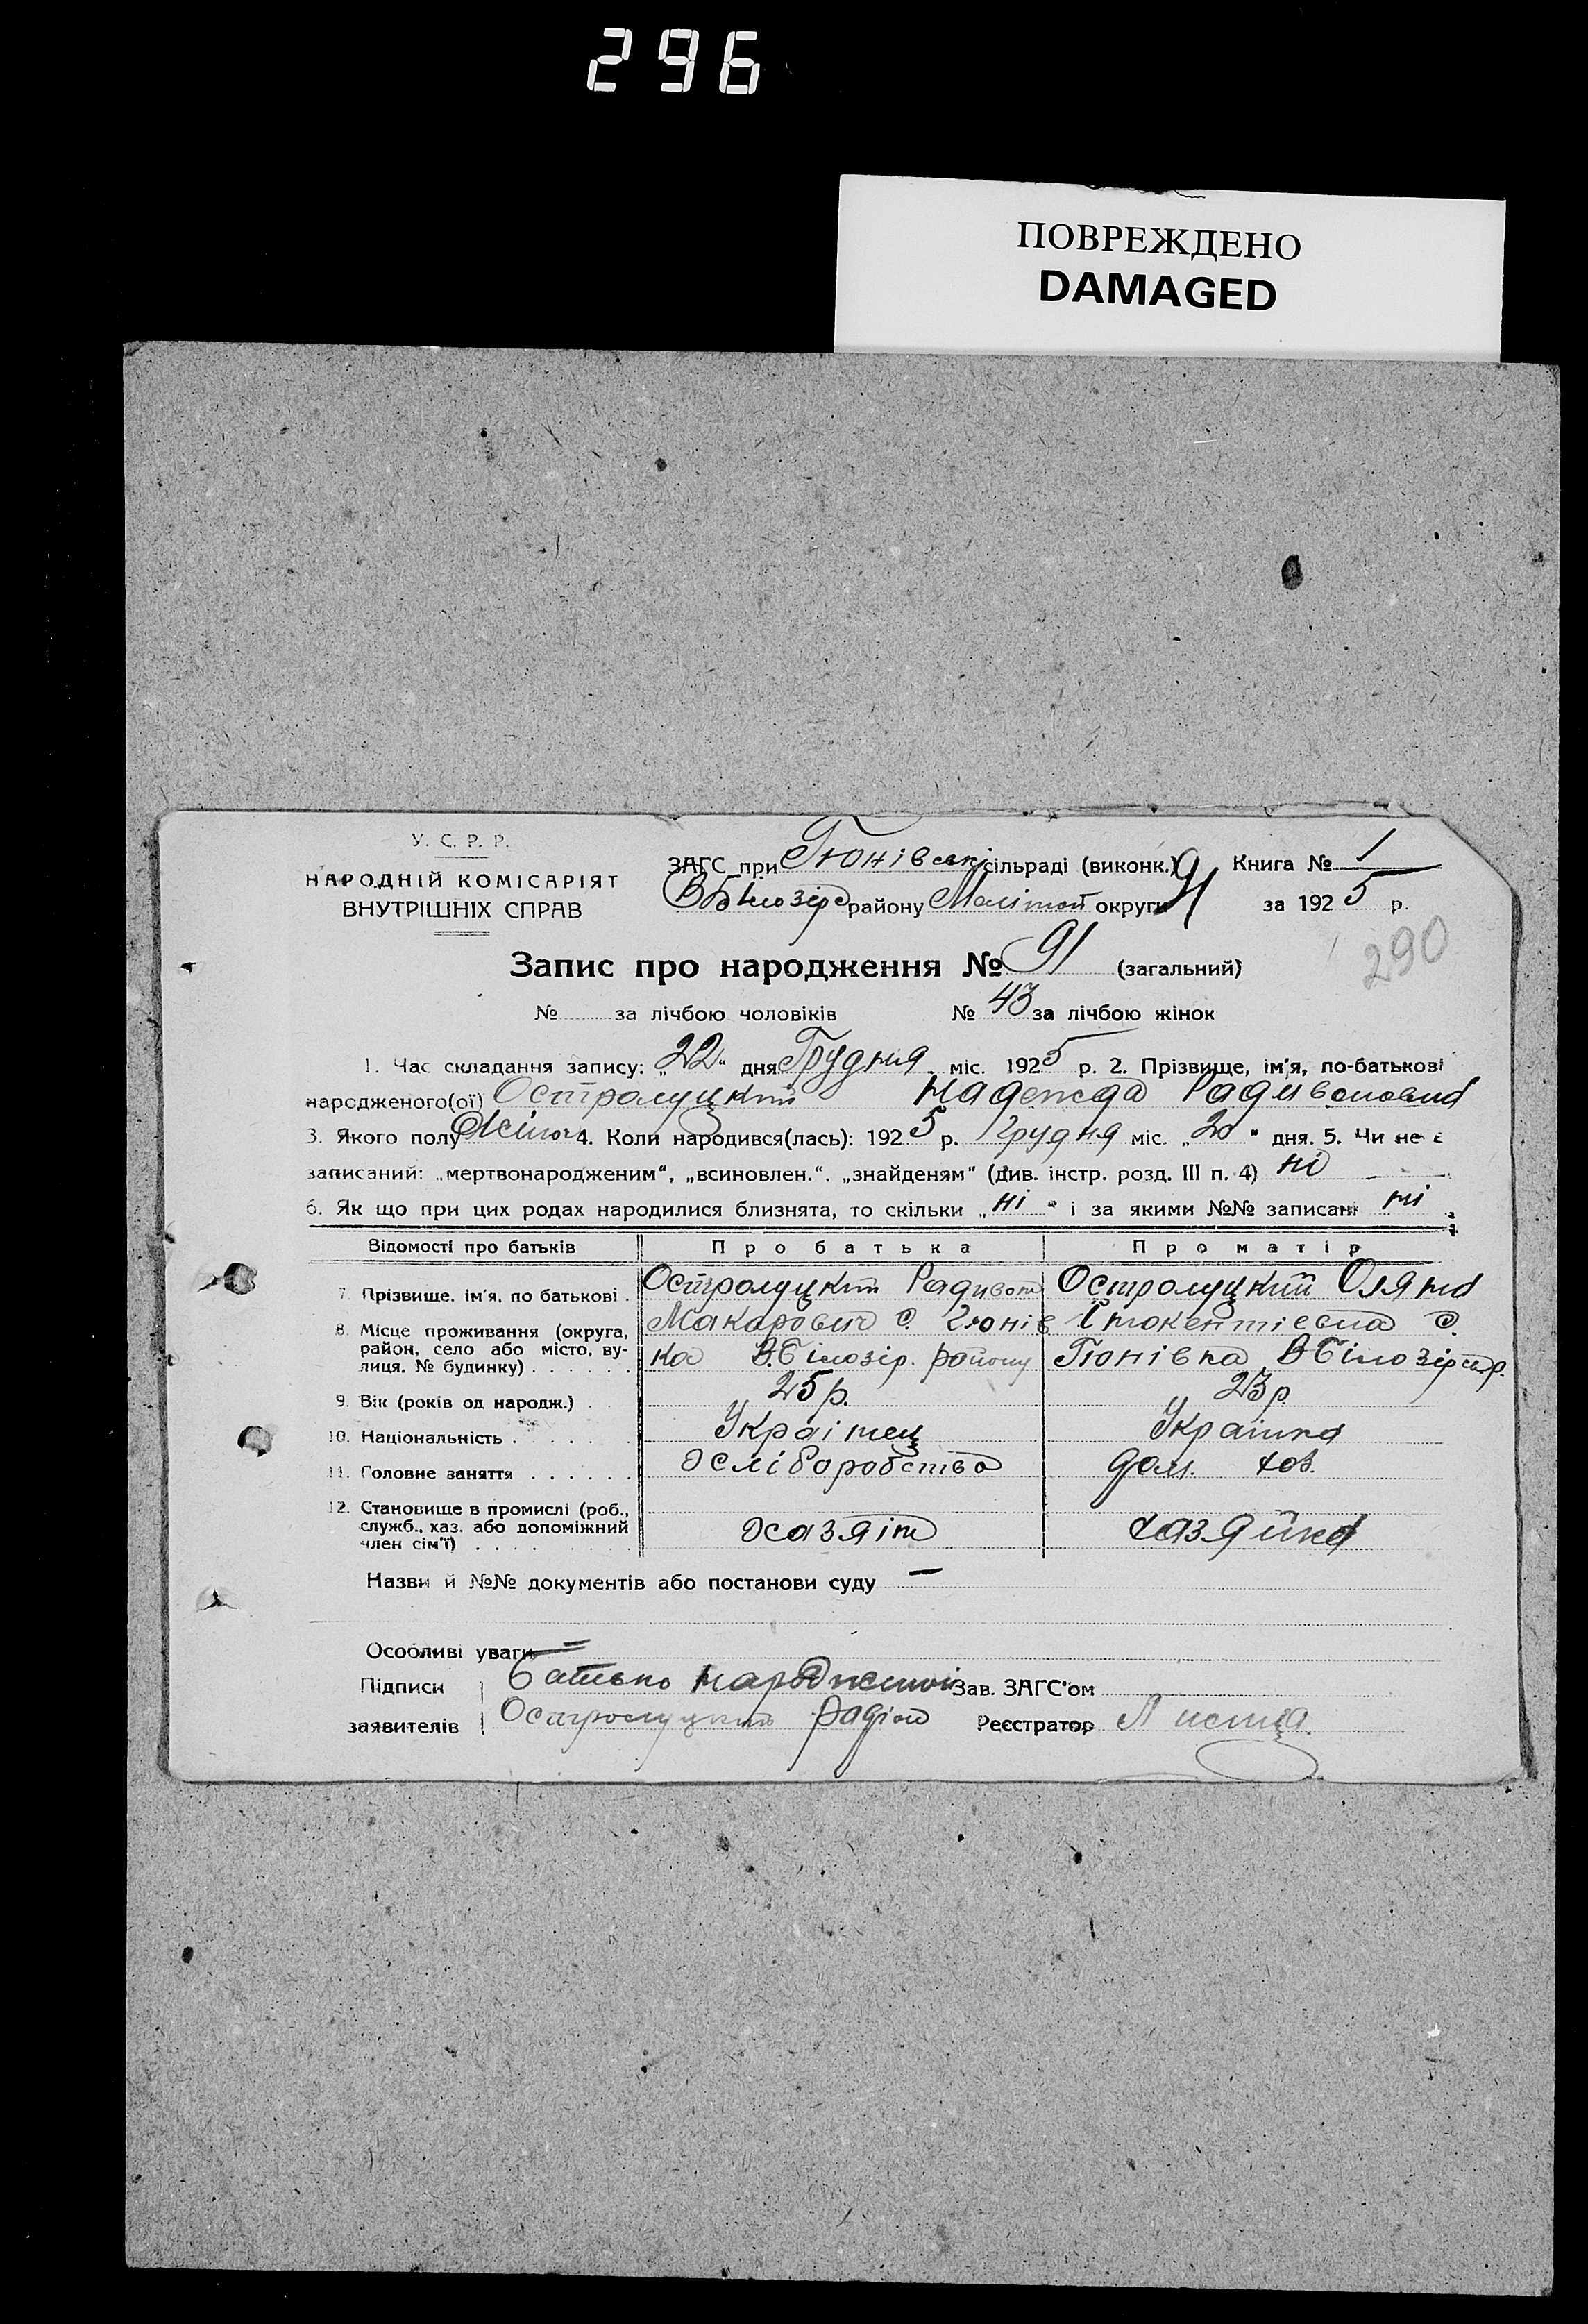 296
ПОВРЕЖДЕНО
DAMAGED
У. С. Р. Р.
НАРОДНІЙ КОМІСАРІЯТ
ВНУТРІШНІХ СПРАВ
ЗАГС при Гюнівскі сільраді (виконк.) Книга № 1
В Білозірс району Мелітоп округи 91 за 1925 р.
290
Запис про народження № 91 (загальний)
№ за лічбою чоловіків № 43 за лічбою жінок
1. Час складання запису: „22“ дня Грудня міс. 1925 р. 2. Прізвище, ім'я, по-батькові
народженого(ої) Остролуцкий Надежда Радивоновна
3. Якого полу Жіноч 4. Коли народився(лась): 1925 р. Грудня міс. „20“ дня. 5. Чи не є
записаний: „мертвонародженим“, „всиновлен.“, „знайденям“ (див. інстр. розд. III п. 4) ні
6. Як що при цих родах народилися близнята, то скільки „ні“ і за якими №№ записані ні
Відомості про батьків Про батька Про матір
7. Прізвище, ім'я, по батькові . Остролуцкий Радивон Остролуцкий Оляна
8. Місце проживання (округа, район, село або місто, вулиця, № будинку) . . . . . Макарович с. Гюнів с.
ка В.Білозір. району Гюнівка В Білозір р.
9. Вік (років од народж.) . . 25 р. 23 р
10. Національність . . . . . Українец Українка
11. Головне заняття . . . . . . Хліборобство дом. хоз.
12. Становище в промислі (роб., служб., хаз. або допоміжний член сім'ї) . . . . Хазяін хазяйка
Назви й №№ документів або постанови суду —
Особливі уваги =
Підписи Батько нарожденой Зав. ЗАГС'ом
заявителів Остролуцкий Радіон Реєстратор